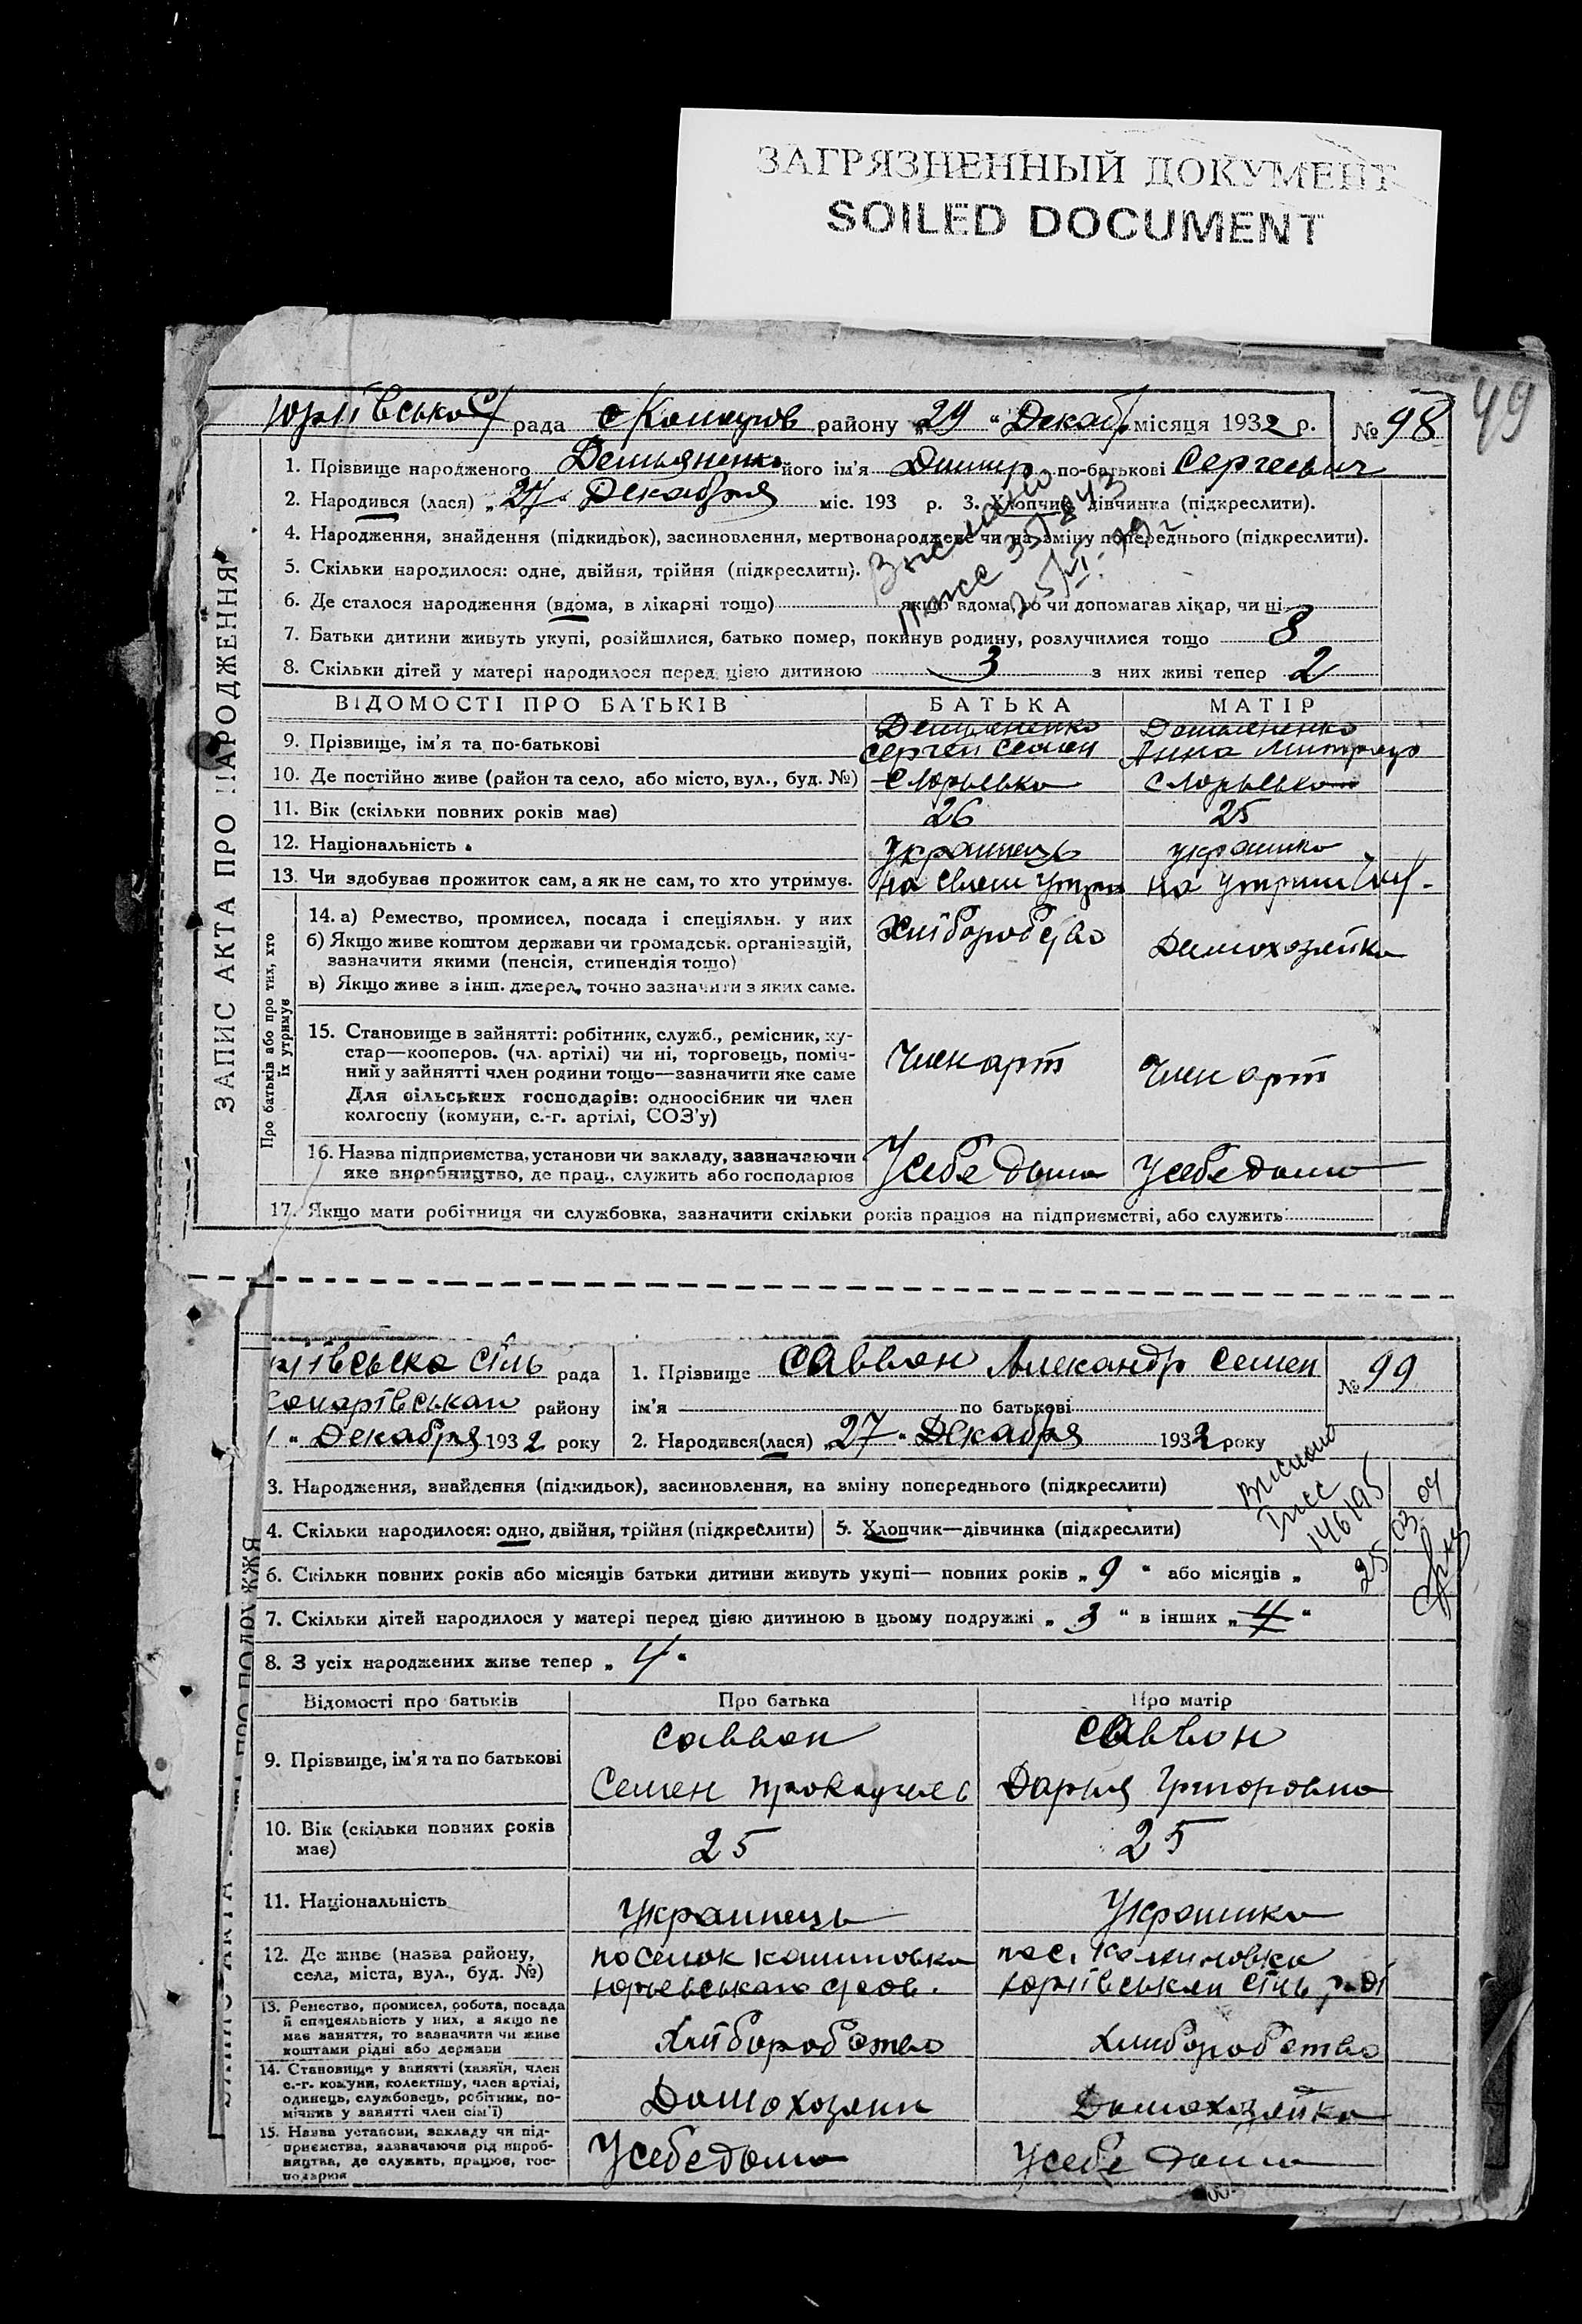 ЗАГРЯЗНЕННЫЙ ДОКУМЕНТ
SOILED DOCUMENT
49
рада района району „29 “ Декабр місяця 1932 р. № 98
1. Прізвище народженого Демьяненко його ім'я по-батькові Сергеевич
2. Народився (лася) „27 “ Декабря міс. 193 р. 3. Хлопчик дівчинка (підкреслити).
4. Народження, знайдення (підкидьок), засиновлення, мертвонароджене чи на зміну попереднього (підкреслити).
5. Скільки народилося: одне, двійня, трійня (підкреслити).
6. Де сталося народження (вдома, в лікарні тощо) якщо вдома, то чи допомагав лікар, чи ні
7. Батьки дитини живуть укупі, розійшлися, батько помер, покинув родину, розлучилися тощо 8
8. Скільки дітей у матері народилося перед цією дитиною 3 з них живі тепер 2
ЗАПИС АКТА ПРО НАРОДЖЕННЯ
ВІДОМОСТІ ПРО БАТЬКІВ БАТЬКА МАТІР
9. Прізвище, ім'я та по-батькові Демьяненко Сергей Семен Демьяненко Анна
10. Де постійно живе (район та село, або місто, вул., буд. №)
11. Вік (скільки повних років має) 26 25
12. Національність Украинець украинка
13. Чи здобуває прожиток сам, а як не сам, то хто утримує. на
Про батьків або про тих, хто їх утримує
14. а) Ремество, промисел, посада і спеціяльн. у них Хліборобство Домохозяйка
б) Якщо живе коштом держави чи громадськ. організацій,
зазначити якими (пенсія, стипендія тощо)
в) Якщо живе з інш. джерел, точно зазначити з яких саме.
15. Становище в зайнятті: робітник, служб., ремісник, ку-
стар—кооперов. (чл. артілі) чи ні, торговець, поміч-
ний у зайнятті член родини тощо—зазначити яке саме Член арт Член арт
Для сільських господарів: одноосібник чи член
колгоспу (комуни, с.-г. артілі, СОЗ'у)
16. Назва підприємства, установи чи закладу, зазначаючи
яке виробництво, де прац., служить або господарює У себе дома У себе дома
17. Якщо мати робітниця чи службовка, зазначити скільки років працює на підприємстві, або служить
сіль рада 1. Прізвище Саввон Александр Семен № 99
району ім'я по батькові
“ Декабря 1932 року 2. Народився(лася) „27 “ Декабря 1932 року
3. Народження, знайдення (підкидьок), засиновлення, на зміну попереднього (підкреслити)
4. Скільки народилося: одно, двійня, трійня (підкреслити) 5. Хлопчик—дівчинка (підкреслити)
146195
6. Скільки повних років або місяців батьки дитини живуть укупі— повних років „ 9 “ або місяців „
7. Скільки дітей народилося у матері перед цією дитиною в цьому подружжі „ 3 “ в інших „ 4 “
8. З усіх народжених живе тепер „ 4 “
Відомості про батьків Про батька Про матір
9. Прізвище, ім'я та по батькові Саввон Семен Саввон Дарья Григоровна
10. Вік (скільки повних років
має) 25 25
11. Національність Украинець Украинка
12. Де живе (назва району,
села, міста, вул., буд. №) поселок пос.
13. Ремество, промисел, робота, посада
й спецеяльність у них, а якщо не
має заняття, то зазначити чи живе
коштами рідні або держави Хліборобство Хлиборобство
14. Становище у занятті (хазяїн, член
с.-г. комуни, колективу, член артілі,
одинець, службовець, робітник, по-
мічник у занятті член сім'ї) Домохозяин Домохозяйка
15. Назва установи, закладу чи під-
приємства, зазначаючи рід вироб-
ництва, де служить, працює, гос-
подарює У себе дома У себе дома